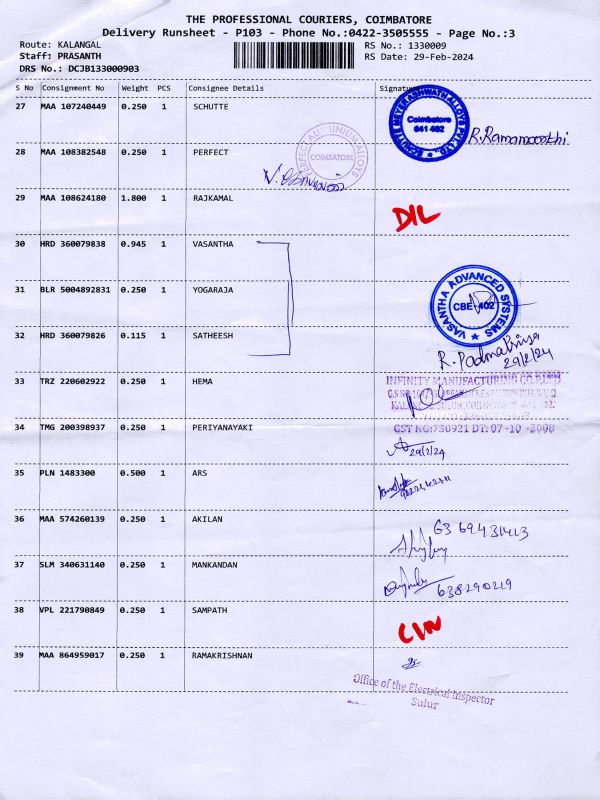 THE PROFESSIONAL COURIERS, COIMBATORE
Delivery Runsheet - P103 - Phone No.:0422-3505555 - Page No.:3
Route: KALANGAL
RS No.: 1330009
Staff: PRASANTH
RS Date: 29-Feb-2024
DRS No.: DCJB133000903
S No Consignment No Weight PCS Consignee Details Signature
27 MAA 107240449 0.250 1 SCHUTTE
Coimbatore
641 402
R.Ramamoorthi
28 MAA 108382548 0.250 1 PERFECT
PERFECT ALUMINIUM ALLOYS
COIMBATORE
29 MAA 108624180 1.800 1 RAJKAMAL
D/L
30 HRD 360079838 0.945 1 VASANTHA
31 BLR 5004892831 0.250 1 YOGARAJA
VASANTHA ADVANCED SYSTEMS
CBE-402
32 HRD 360079826 0.115 1 SATHEESH
R. Padmakriya
29/2/24
33 TRZ 220602922 0.250 1 HEMA
INFINITY MANUFACTURING CO.P.LTD
34 TMG 200398937 0.250 1 PERIYANAYAKI
CST NO:730921 DT:07-10-2008
29/2/24
35 PLN 1483300 0.500 1 ARS
36 MAA 574260139 0.250 1 AKILAN
37 SLM 340631140 0.250 1 MANKANDAN
638290219
38 VPL 221790849 0.250 1 SAMPATH
39 MAA 864959017 0.250 1 RAMAKRISHNAN
Office of the Electrical Inspector
Sulur